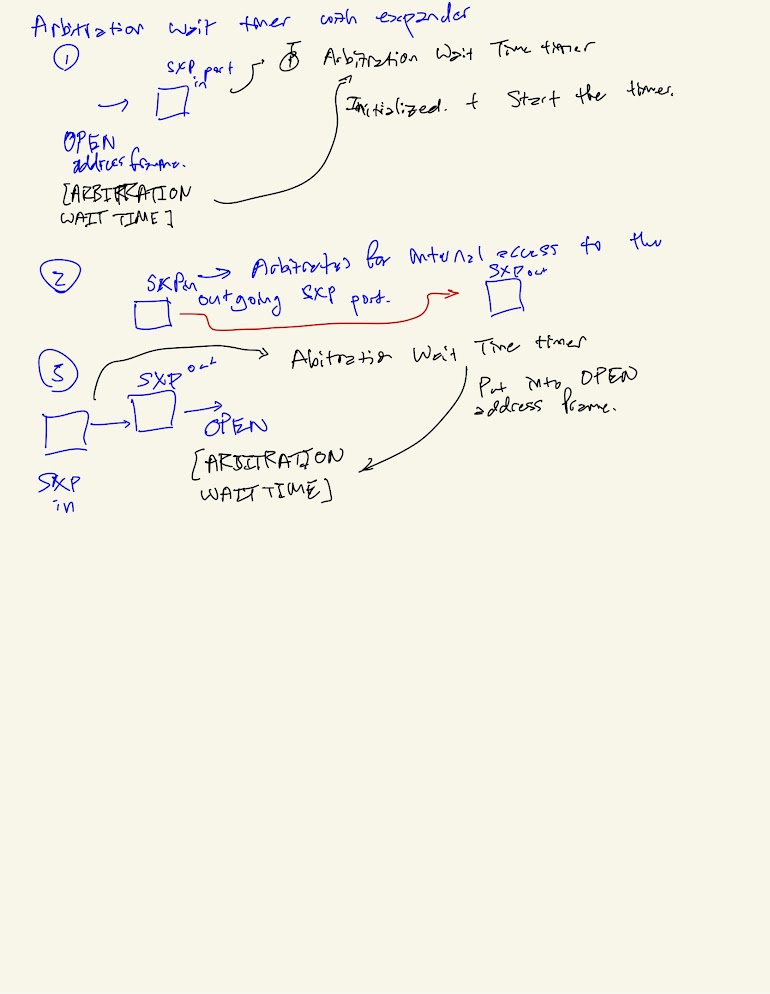 Arbitration wait timer with expander
①
SXP port in
Arbitration Wait Time timer
Initialized. + Start the timer.
OPEN
address frame.
[ARBITRATION
WAIT TIME]
②
SXPin → Arbitrates for internal access to the
outgoing SXP port.
SXPout
③
Abitration Wait Time timer
SXPout
Put into OPEN
address frame.
OPEN
[ARBITRATION
WAIT TIME]
SXP
in